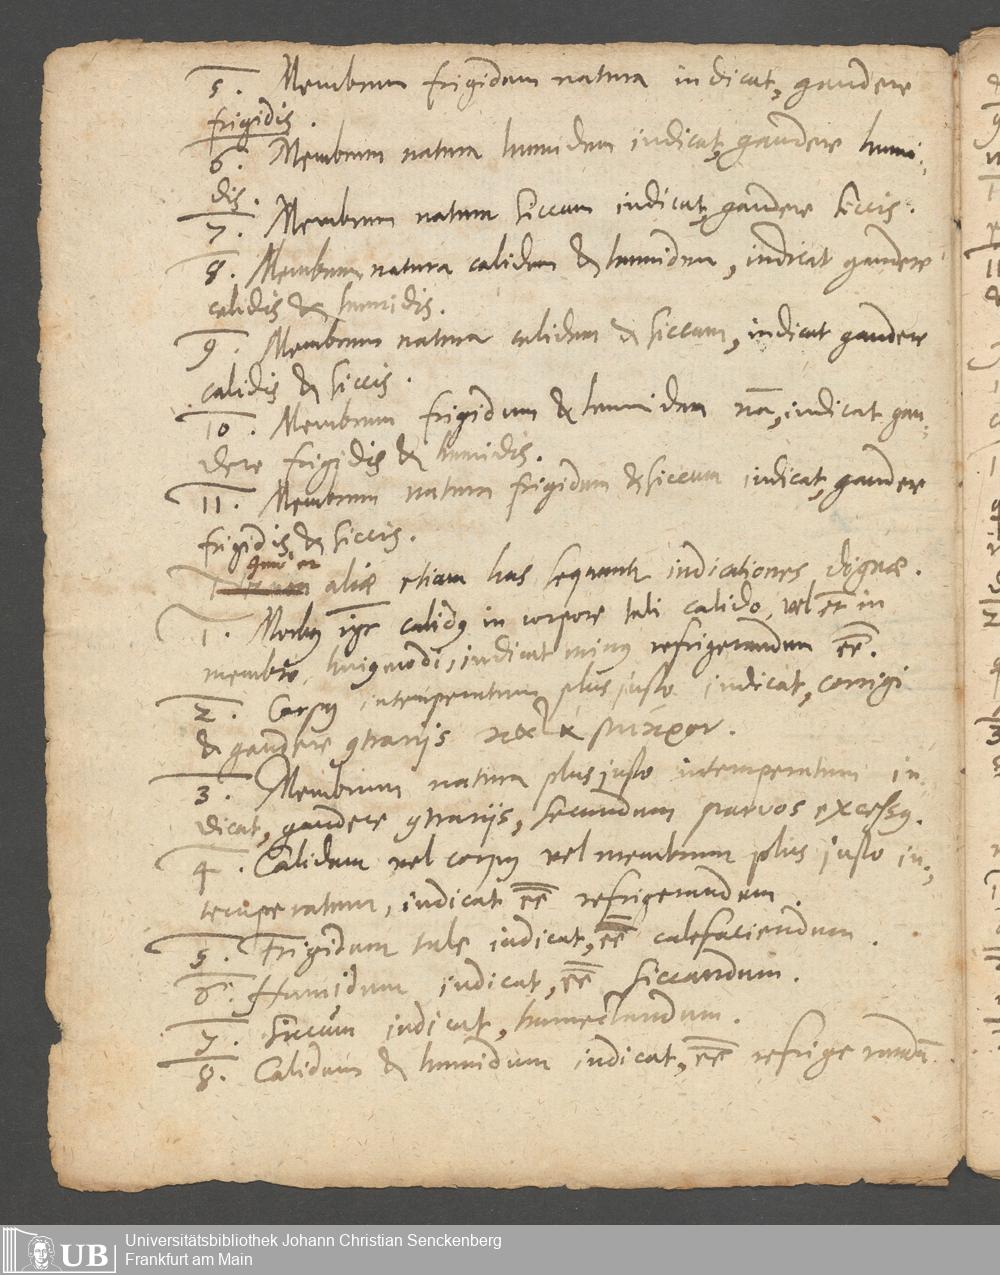 5. Membrum frigidum natura indicat, gaudere
frigidis.
6. Membrum natura humidum indicat, gaudere humi-
dis.
7. Membrum natura siccum indicat, gaudere siccis.
8. Membrum natura calidum & humidum, indicat gaudere
calidis & humidis.
9. Membrum natura calidum & siccum, indicat gaudere
calidis & siccis.
10. Membrum frigidum & humidum nã, indicat gau-
dere frigidis & humidis.
11. Membrum natura frigidum & siccum indicat, gaudere
frigidis & siccis.
aliæ etiam has sequuntr indicationes dignæ.
1. Morbus igr calidus in corpore tali calido, vel et in
membro huiusmodi, indicat minus refrigerandum ẽẽ.
2. Corpus intemperatum plus justo indicat, corrigi
& gaudere contrarijs
3. Membrum natura plus justo intemperatum in-
dicat, gaudere contrarijs, secundum parvos excessus.
4. Calidum vel corpus vel membrum plus justo in-
temperatum, indicat ẽẽ refrigerandum.
5. Frigidum tale indicat, ẽẽ calefaciendum.
6. Humidum indicat, ẽẽ siccandum.
7. Siccum indicat, humectandum.
8. Calidum & humidum indicat, ẽẽ refrigerandũ
UB Universitätsbibliothek Johann Christian Senckenberg
Frankfurt am Main